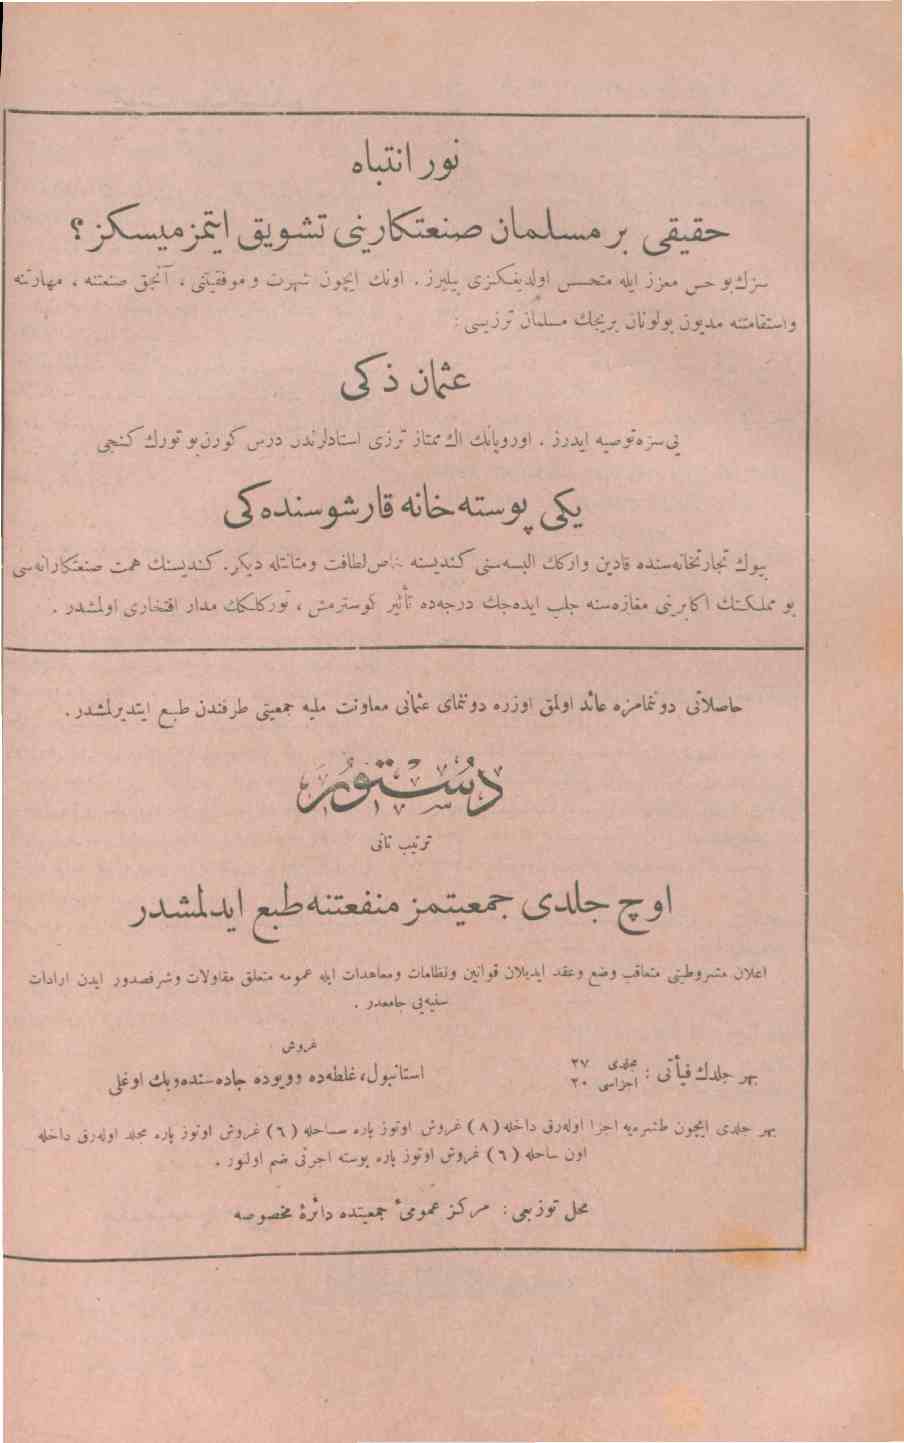 نور انتباه
حقیقی بر مسلمان صنعتکارینی تشویق ایتمزمیسکز؟
سزك بو حس معزز ایله متحسس اولدیغکزی بیلیرز . اونك ایچون شهرت و موفقیتنی ، آنجق صنعتنه ، مهارتنه
واستقامتنه مدیون بولونان بریجك مسلمان ترزیسی :
عثمان ذکی
یی سزه توصیه ایدرز . اوروپانك اك ممتاز ترزی استادلرندن درس کورن بو تورك کنجی
یکی پوسته خانه قارشوسنده کی
بیوك تجارتخانه‌سنده قادین وارکك البسه‌سنی کندیسنه خاص لطافت ومتانتله دیکر. کندیسنك همت صنعتکارانه‌سی
بو مملکتك اکابرینی مغازه‌سنه جلب ایده‌جك درجه‌ده تأثیر کوسترمش ، تورکلکك مدار افتخاری اولمشدر .
حاصلاتی دونمامزه عائد اولمق اوزره دونمای عثمانی معاونت ملیه جمعیتی طرفندن طبع ایتدیرلمشدر .
دستور
ترتیب ثانی
اوچ جلدی جمعیتمز منفعتنه طبع ایدلمشدر
اعلان مشروطیتی متعاقب وضع وعقد ایدیلان قوانین ونظامات ومعاهدات ایله عمومه متعلق مقاولات وشرفصدور ایدن ارادات
سنیه‌یی جامعدر .
غروش
بهر جلدك فیأتی : مجلدی ٢٧ اجزاسی ٢٠ استانبول، غلطه‌ده وویوده جاده‌سنده‌وبك اوغلی
بهر جلدی ایچون طشره‌یه اجزا اوله‌رق داخله (٨) غروش اوتوز پاره ساحله (٦) غروش اوتوز پاره مجلد اوله‌رق داخله
اون ساحله (٦) غروش اوتوز پاره پوسته اجرتی ضم اولنور .
محل توزیعی : مرکز عمومیٔ جمعیتده دائرهٔ مخصوصه